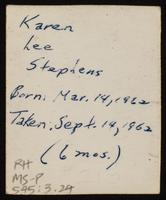 Karen
Lee
Stephens
Born: Mar. 14, 1962
Taken, Sept. 14, 1962
(6 mos.)
RH
MS-P
545:3.24